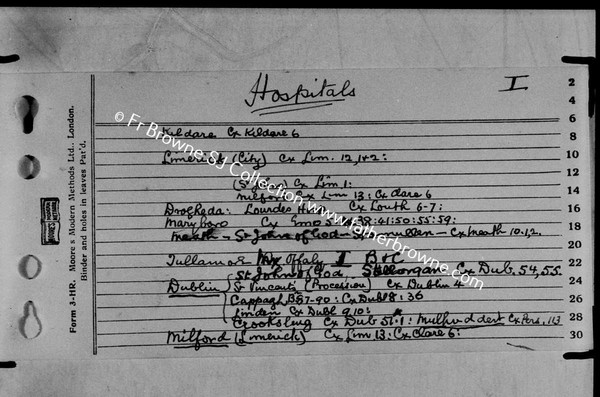 Hospitals
I
Kildare Cx Kildare 6
Limerick (City) Cx Lim. 12, 1+2:
(St John) Cx Lim 1:
Milford Cx Lim 13: Cx Clare 6
Drogheda: Lourdes Cx Louth 6-7:
Maryboro Cx 41:50:55:59:
Meath - St Johns of God - Cx Meath 10.1,2.
Tullamore Offaly I B+C
St Johns of God. Stillorgan Cx Dub. 54,55
Dublin St Vincents (Procession) Cx Dublin 4
Cappagh B87-90: Cx Dubl 8: 36
Linden Cx Dubl 9,10:
Crooksling Cx Dub 51.1: Cx Pors. 113
Milford (Limerick) Cx Lim 13: Cx Clare 6:
2
4
6
8
10
12
14
16
18
20
22
24
26
28
30
Form 3-HR. Moore's Modern Methods Ltd., London.
Binder and holes in leaves Pat'd.
© Fr Browne SJ Collection www.fatherbrowne.com